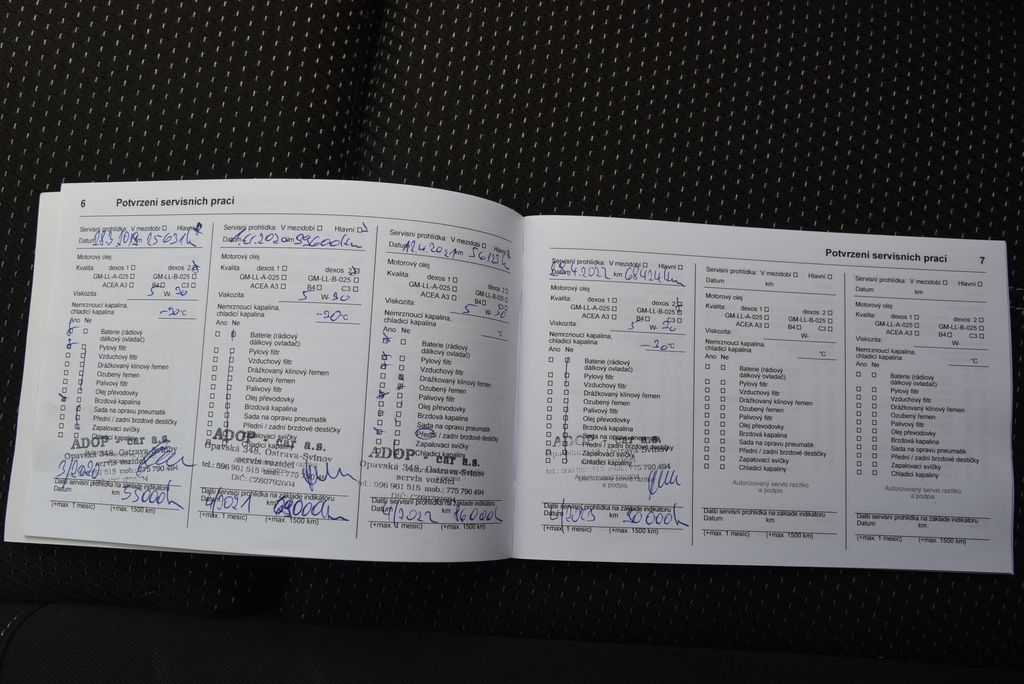 6 Potvrzení servisních prací
Servisní prohlídka: V mezidobí Hlavní
Datum km
Motorový olej
Kvalita: dexos 1 dexos 2
GM-LL-A-025 GM-LL-B-025
ACEA A3 B4 C3
Viskozita: 5 W- 30
Nemrznoucí kapalina,
chladicí kapalina -30°C
Ano Ne
Baterie (rádiový
dálkový ovladač)
Pylový filtr
Vzduchový filtr
Drážkovaný klínový řemen
Ozubený řemen
Palivový filtr
Olej převodovky
Brzdová kapalina
Sada na opravu pneumatik
Přední / zadní brzdové destičky
Zapalovací svíčky
Chladicí kapaliny
ADOP - car a.s.
Opavská 348, Ostrava-Svinov
servis vozidel
515 mob.: 775 790 494
3/2020 55000
Další servisní prohlídka na základě indikátoru
Datum km
(+max. 1 měsíc) (+max. 1500 km)
Servisní prohlídka: V mezidobí Hlavní
Datum km
Motorový olej
Kvalita: dexos 1 dexos 2
GM-LL-A-025 GM-LL-B-025
ACEA A3 B4 C3
Viskozita: 5 W- 30
Nemrznoucí kapalina,
chladicí kapalina -30°C
Ano Ne
Baterie (rádiový
dálkový ovladač)
Pylový filtr
Vzduchový filtr
Drážkovaný klínový řemen
Ozubený řemen
Palivový filtr
Olej převodovky
Brzdová kapalina
Sada na opravu pneumatik
Přední / zadní brzdové destičky
Zapalovací svíčky
Chladicí kapaliny
ADOP - car a.s.
Opavská 348, Ostrava-Svinov
servis vozidel
tel.: 596 961 515 mob.: 775
Další servisní prohlídka na základě indikátoru
4/2021
(+max. 1 měsíc) (+max. 1500 km)
Servisní prohlídka: V mezidobí Hlavní
Datum 12.4.2021 km
Motorový olej
Kvalita: dexos 1 dexos 2
GM-LL-A-025 GM-LL-B-025
ACEA A3 B4 C3
Viskozita: 5 W- 30
Nemrznoucí kapalina,
chladicí kapalina °C
Ano Ne
Baterie (rádiový
dálkový ovladač)
Pylový filtr
Vzduchový filtr
Drážkovaný klínový řemen
Ozubený řemen
Palivový filtr
Olej převodovky
Brzdová kapalina
Sada na opravu pneumatik
Přední / zadní brzdové destičky
Zapalovací svíčky
Chladicí kapaliny
ADOP - car a.s.
Opavská 348, Ostrava-Svinov
servis vozidel
tel.: 596 961 515 mob.: 775 790 494
Další servisní prohlídka na základě indikátoru
4/2022
(+max. 1 měsíc) (+max. 1500 km)
Potvrzení servisních prací 7
Servisní prohlídka: V mezidobí Hlavní
Datum km
Motorový olej
Kvalita: dexos 1 dexos 2
GM-LL-A-025 GM-LL-B-025
ACEA A3 B4 C3
Viskozita: 5 W- 30
Nemrznoucí kapalina,
chladicí kapalina -30°C
Ano Ne
Baterie (rádiový
dálkový ovladač)
Pylový filtr
Vzduchový filtr
Drážkovaný klínový řemen
Ozubený řemen
Palivový filtr
Olej převodovky
Brzdová kapalina
Sada na opravu pneumatik
Přední / zadní brzdové destičky
Zapalovací svíčky
Chladicí kapaliny
Autorizovaný servis razítko
a podpis
Další servisní prohlídka na základě indikátoru
Datum km
(+max. 1 měsíc) (+max. 1500 km)
Servisní prohlídka: V mezidobí Hlavní
Datum km
Motorový olej
Kvalita: dexos 1 dexos 2
GM-LL-A-025 GM-LL-B-025
ACEA A3 B4 C3
Viskozita: W-
Nemrznoucí kapalina,
chladicí kapalina °C
Ano Ne
Baterie (rádiový
dálkový ovladač)
Pylový filtr
Vzduchový filtr
Drážkovaný klínový řemen
Ozubený řemen
Palivový filtr
Olej převodovky
Brzdová kapalina
Sada na opravu pneumatik
Přední / zadní brzdové destičky
Zapalovací svíčky
Chladicí kapaliny
Autorizovaný servis razítko
a podpis
Další servisní prohlídka na základě indikátoru
Datum km
(+max. 1 měsíc) (+max. 1500 km)
Servisní prohlídka: V mezidobí Hlavní
Datum km
Motorový olej
Kvalita: dexos 1 dexos 2
GM-LL-A-025 GM-LL-B-025
ACEA A3 B4 C3
Viskozita: W-
Nemrznoucí kapalina,
chladicí kapalina °C
Ano Ne
Baterie (rádiový
dálkový ovladač)
Pylový filtr
Vzduchový filtr
Drážkovaný klínový řemen
Ozubený řemen
Palivový filtr
Olej převodovky
Brzdová kapalina
Sada na opravu pneumatik
Přední / zadní brzdové destičky
Zapalovací svíčky
Chladicí kapaliny
Autorizovaný servis razítko
a podpis
Další servisní prohlídka na základě indikátoru
Datum km
(+max. 1 měsíc) (+max. 1500 km)